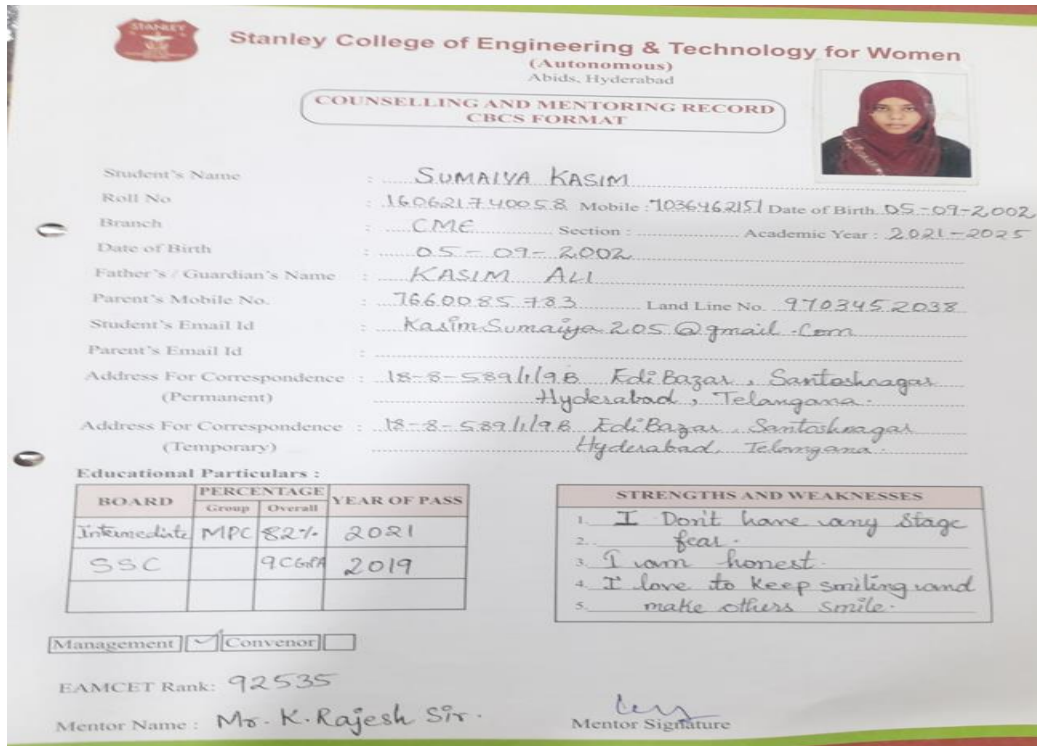 STANLEY
Stanley College of Engineering & Technology for Women
(Autonomous)
Abids, Hyderabad
COUNSELLING AND MENTORING RECORD
CBCS FORMAT
Student's Name : SUMAIYA KASIM
Roll No : 160621740058 Mobile : 7036462151 Date of Birth 05-09-2002
Branch : CME Section : Academic Year : 2021-2025
Date of Birth : 05-09-2002
Father's / Guardian's Name : KASIM ALI
Parent's Mobile No. : 7660085783 Land Line No. 9703452038
Student's Email Id : KasimSumaiya205@gmail.com
Parent's Email Id :
Address For Correspondence : 18-8-589/1/9B Edi Bazar, Santoshnagar
(Permanent) Hyderabad, Telangana.
Address For Correspondence : 18-8-589/1/9B Edi Bazar, Santoshnagar
(Temporary) Hyderabad, Telangana.
Educational Particulars :
BOARD PERCENTAGE YEAR OF PASS
Group Overall
Intermediate MPC 82% 2021
SSC 9CGPA 2019
STRENGTHS AND WEAKNESSES
1. I Don't have any Stage
2. fear.
3. I am honest.
4. I love to Keep smiling and
5. make others smile.
Management ✓ Convenor
EAMCET Rank: 92535
Mentor Name : Mr. K. Rajesh Sir.
Mentor Signature